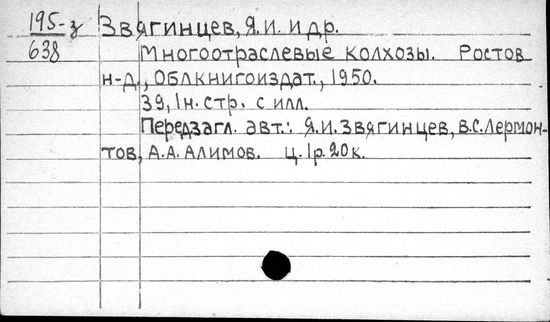 195-з
638
Звягинцев, Я. И. и др.
Многоотраслевые колхозы. Ростов
н-Д., Облкнигоиздат., 1950.
39, 1н. стр. с илл.
Передзагл. авт.: Я. И. Звягинцев, В. С. Лермон-
тов, А. А. Алимов. ц. 1р. 20к.